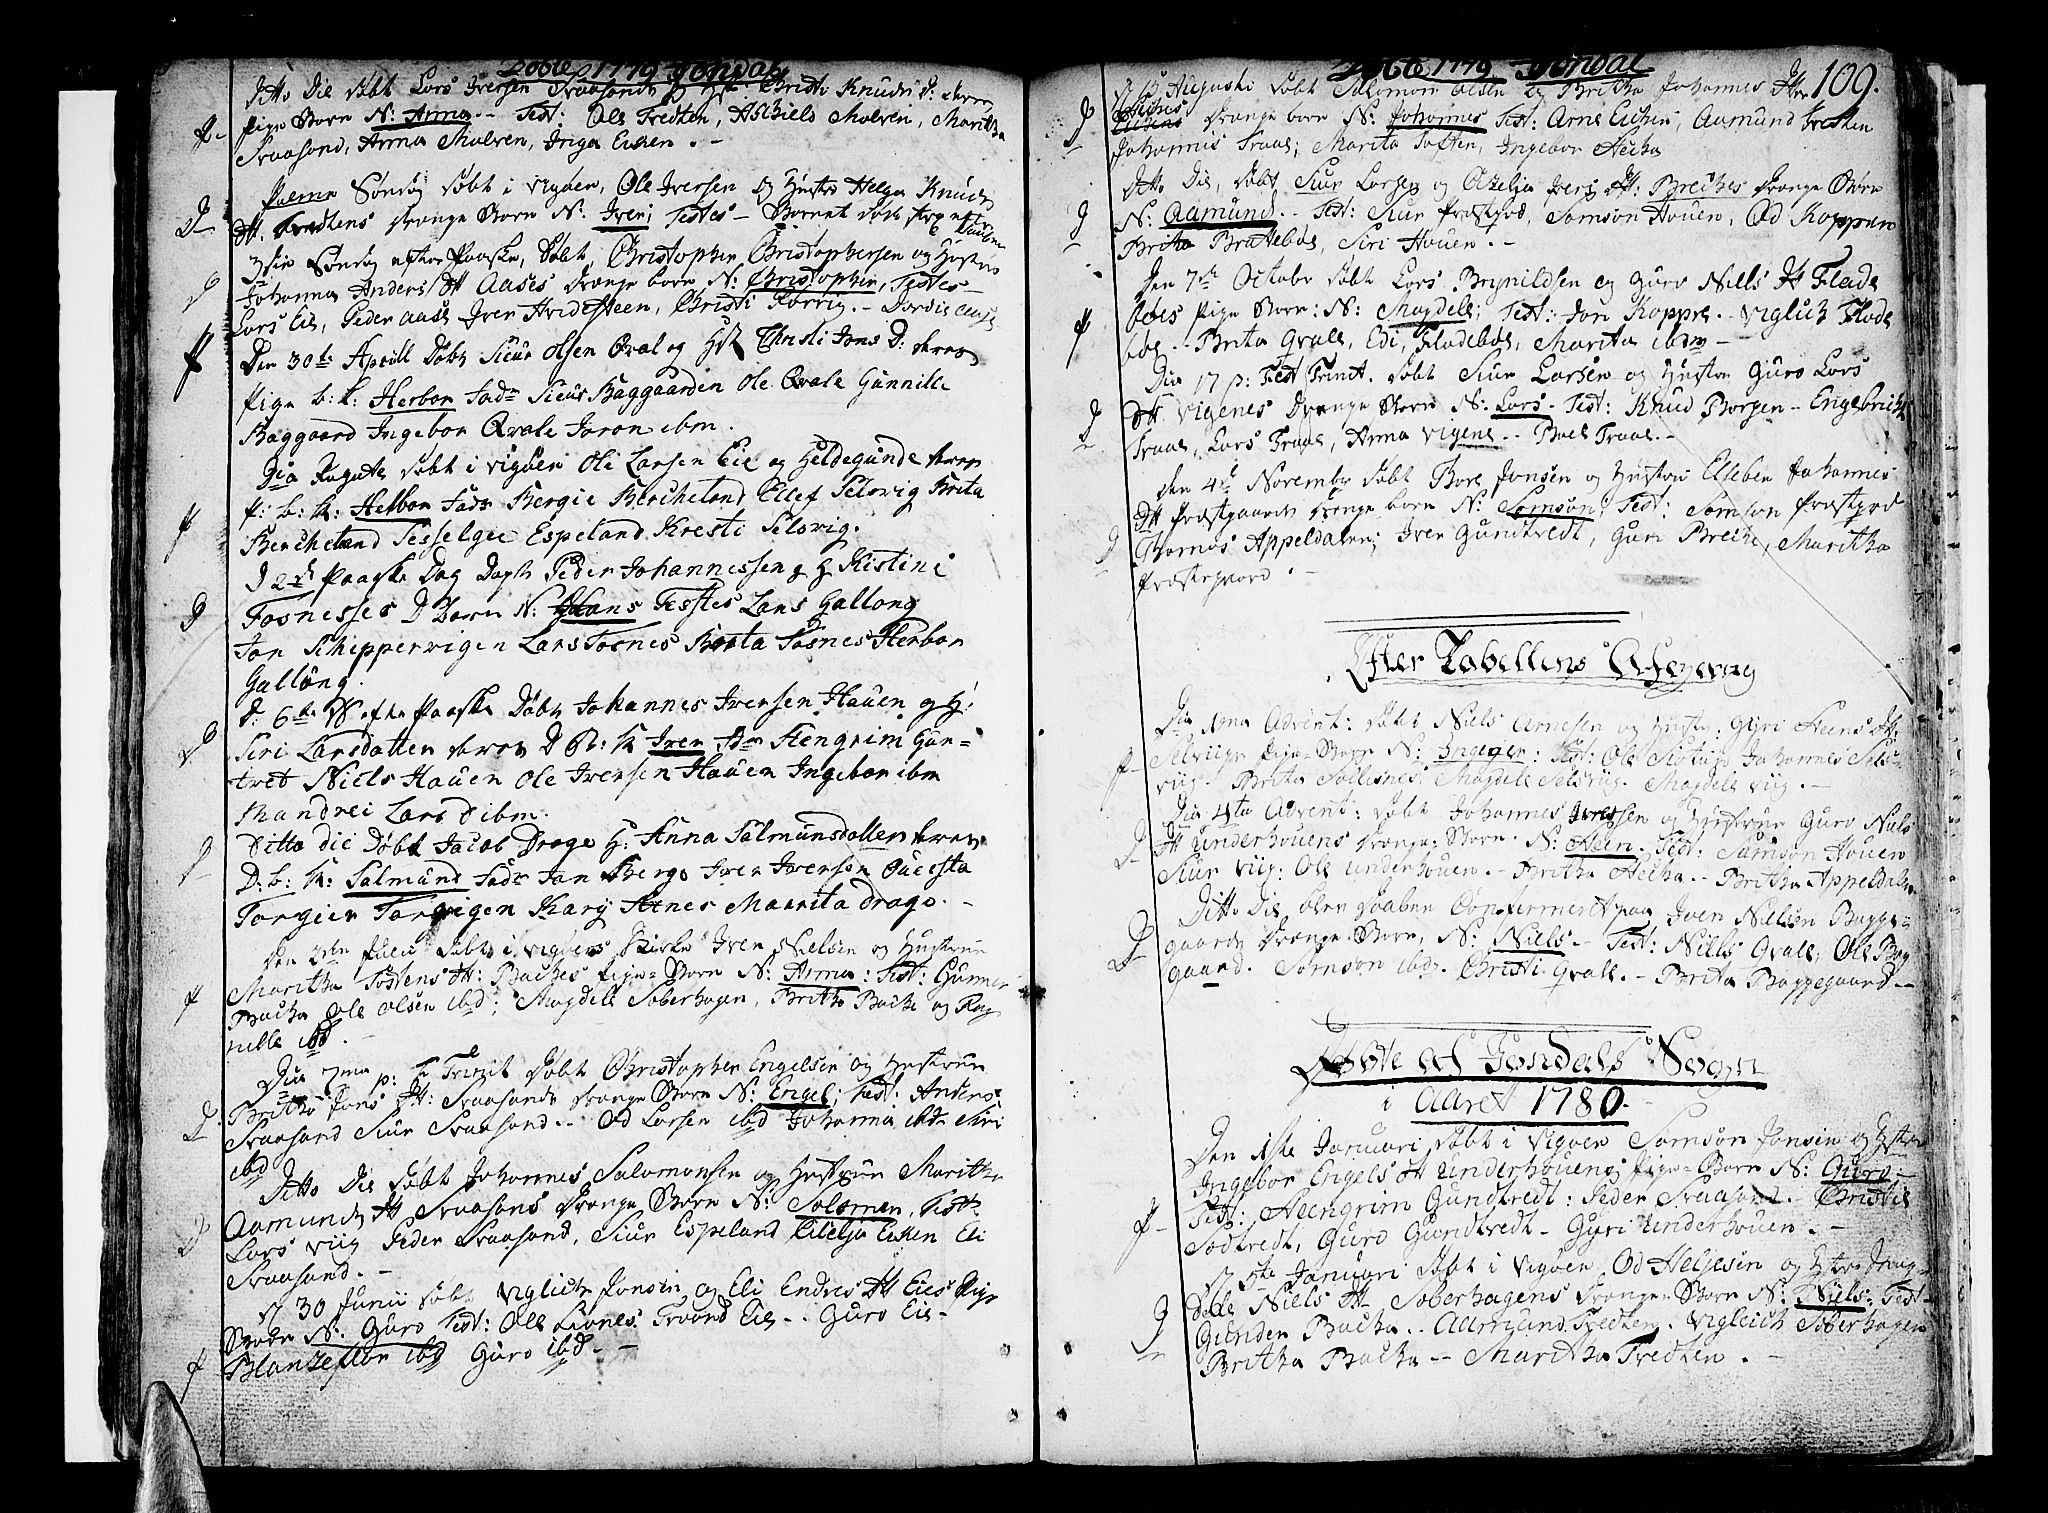 Døbte 1779 Jondal
Ditto Die døbt Lors Iversen Svaasands og Hst. Christi Knuds D: deres
Pige Born N: Anna. Test: Ole Tredten, Molven, Maritha
Svaasand, Anna Molven, Inga Eichen.
Palma Søndag døbt i Vigøen, Ole Iversen og Hustro Helga Knuds
Dtt. Tredtens Drænge Born N: Iver; Testes Bornet døde
3die Søndag efter Paaske, døbt, Christopher Christophersen og Hustru
Johanna Anders Dtt Aases Drænge born N: Christopher, Testes
Lors Eie, Peder Aase Iver Hvidesteen, Christi Dordie Aase
Den 30te Aprill Døbt Siur Olsen Qval og Hst Christi Jons D: deres
Pige b: k: Herbor Fadr Siur Baggaarden Ole Qvale Gunnille
Baggaard Ingebor Qvale Joron ibm.
Dia Rogate døbt i Vigøen Oli Larsen Eie og Heldegunde deres
P: b: k: Herbor Fadr Bergie Bercheland Ellef Selsvig Brita
Bercheland Sesselgie Espeland Kresti Selsvig.
D 2den Paaske Dag Døpt Peder Johannessen og H Kistini
Fosnesses D Barn N: Hans Testes Lars Gallong
Jon Schippervigen Lars Fosnes Brita Fosnes Herbor
Gallong.
D: 6te S efter Paaske Døbt Johannes Iversen Hauen og H:
Siri Larsdatter deres D B: k Iver Fadr Stengrim Gun-
tvet Niels Hauen Ole Iversen Hauen Ingebor ibm
Randrei Lars d ibm.
Ditto die Døbt Jacob Drage H: Anna Salmunsdatter deres
D: b: k: Salmund Fadr Jan Berge Iver Iversen
Torgier Torsvigen Karij Aenes Marita Drage.
Den 2den Juli døbt i Vigøers Kirke Iver Nielsen og Hustrue
Maritha Tostens Dtt: Baches Pige-Born N: Anna: Test: Gunner
Bacha Ole Olsen ibd; Magdele Soberhagen, Britha Bache og Rag
nille ibd.
Dia 7ma p: F Trinit Døbt Christopher Engelsen og Hustrue
Britha Jons Dtt: Svaasands Drænge Born N: Engel; Test: Anders
Svaasand Siur Svaasand. Od Larsen ibd Johanna ibd Siri
ibd
Ditto Die Døbt Johannes Salomonsen og Hustrue Maritha
Aamunds Dtt Svaasands Drænge Born N: Salomon, Test
Lors Viig Peder Svaasand, Siur Espeland Eichen Eli
Svaasand.
D 30 Junii døbt Viglich Jonsen og Eli Endres Dtt Eies Pige
Born N: Guro Test: Ole Traand Eie. Guro Eie
Blanzeflor ibd Guro ibd.
Døbte 1779 Jondal
109.
Augusti døbt Salomon Olsen og Britha Johannes Dtr
Eichens Drænge born N: Johannes Test: Arne Eichen, Aamund Eichen
Johannis Traae; Marita Toften, Ingebor Hecka
Ditto Die, døbt Siur Lorsen og Ivers Dtt: Breches Drænge Børn
N: Aamund. Test: Siur Præstgrd, Samson Houen, Od Koppen
Brita Brattebøe, Siri Houen.
Den 7de Octobr døbt Lors Brynildsen og Guro Niels Dtt Flade
bøes Pige Born: N: Magdele; Test: Jon Koppre. Viglich Flade
bøe. Brita Qvale, Edi, Fladebøe, Marita ibm
Dia 17 p: Fest Trinit. døbt Siur Larsen og Hustro Guro Lors
Dtt. Vigenes Drænge Born N: Lors. Test: Knud Borgen Engebricht
Traae, Lors Traae, Anna Vigene. Boel Traae.
Den 4de Novembr døbt Bore Jonsen og Hustru Elleben Johannes
Dtt Præstgaarde Drænge born N: Samson; Test: Samson Præstgrd
Thomas Appeldalen; Iver Gundtvedt, Guri Breche, Maritha
Præstegaard.
Efter Tabellens Afgang
Dia 1ma Advent: døbt Niels Arnesen og Hustr: Guri Heens Dt:
Selsviigs Pige-Born N: Ingeger: Test: Ole Johannes Sels-
viig. Britha Solesnes, Magdele Selsviig. Magdele Viig.
Dia 4ta Advent: døbt Johannes Iversen og Hustrue Guro Niels
Dt Underhouens Drænge-Born. N: Heen. Test: Samson Houen
Siur Viig: Ole Underhouen. Britha Hecka. Britha Appeldalen
Ditto Die blev Daaben Confermeret paa Iver Nielsen Bagge-
gaards Drænge-Born, N: Niels. Test: Niels Qvale, Ole Bag
gaard. Samson ibd. Christi Qvale. Brita Baggegaard.
Døbte af Jondals Sogn
i Aaret 1780.
Den 1ste Januari døbt i Vigøen Samson Jonsen og Hstr
Ingebor Engels Dt Underhouens Pige-Born N: Guro.
Test: Steengrim Gundtvedt: Peder Svaasand. Christie
Sodtvedt, Guro Gundtvedt. Guri Underhouen.
D 5te Januari døbt i Vigøen Od Helgesen og Hstr:
dele Niels Dtt Soberhagens Drænge-Born N: Niels. Test
Gunder Bacha. Aamund Tredten. Vigleich Soberhagen
Britha Bacha Maritha Tredten.